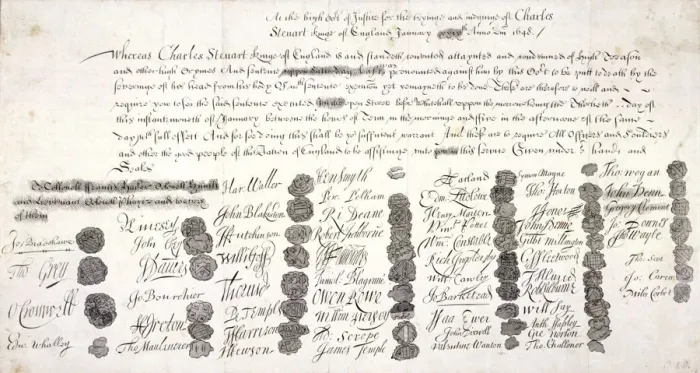 At the high Cort of Justice for the tryinge and iudginge of Charles
Steuart Kinge of England January xxixth Anno Dni 1648./
Whereas Charles Steuart Kinge of England is and standeth convicted attaynted and condemned of High Treason
and other high Crymes And sentence uppon Saturday last was pronounced against him by this Cort to be putt to death by the
severinge of his head from his body Of wch sentence execucon yet remayneth to be done These are therefore to will and
require you to see the said sentence executed In the open Streete before Whitehall uppon the morrowe being the Thirtieth day of
this instante moneth of January betweene the houres of Tenn in the morninge and Five in the afternoone of the same
day wth full effect And for soe doing this shall be yor sufficient warrant And these are to require All Officers and Souldiers
and other the good people of this Nation of England to be assistinge unto you in this service Given under or hands and
Seales
To Collonell Francis Hacker Colonell Huncks
and Lieutenant Colonell Phayre and to every
of them
Jo Bradshawe
Tho Grey
O Cromwell
Edw Whalley
M Livesey
John Okey
J Danvers
Jo Bourchier
H Ireton
Tho Mauleverer
Har Waller
John Blakiston
J Hutchinson
Willi Goff
Tho Pride
P Temple
T Harrison
J Hewson
Hen Smyth
Per Pelham
Ri Deane
Robert Tichborne
H Edwardes
Daniel Blagrave
Owen Rowe
William Purefoy
Ad Scrope
James Temple
A Garland
Edm Ludlowe
Henry Marten
Vint Potter
Wm Constable
Rich Ingoldesby
Will Cawley
Jo Barkstead
Isaa Ewer
John Dixwell
Valentine Wauton
Symon Mayne
Tho Horton
J Jones
John Moore
Gilbt Millington
G Fleetwood
J Alured
Robt Lilburne
Will Say
Anth Stapley
Gre Norton
Tho Challoner
Tho Wogan
John Venn
Gregory Clement
Jo Downes
Tho Wayte
Tho Scot
Jo Carew
Miles Corbet